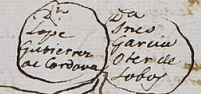 Dn
Lope
Gutierrez
de Cordova
Da
Ines
Garcia
Oter de
Lobos